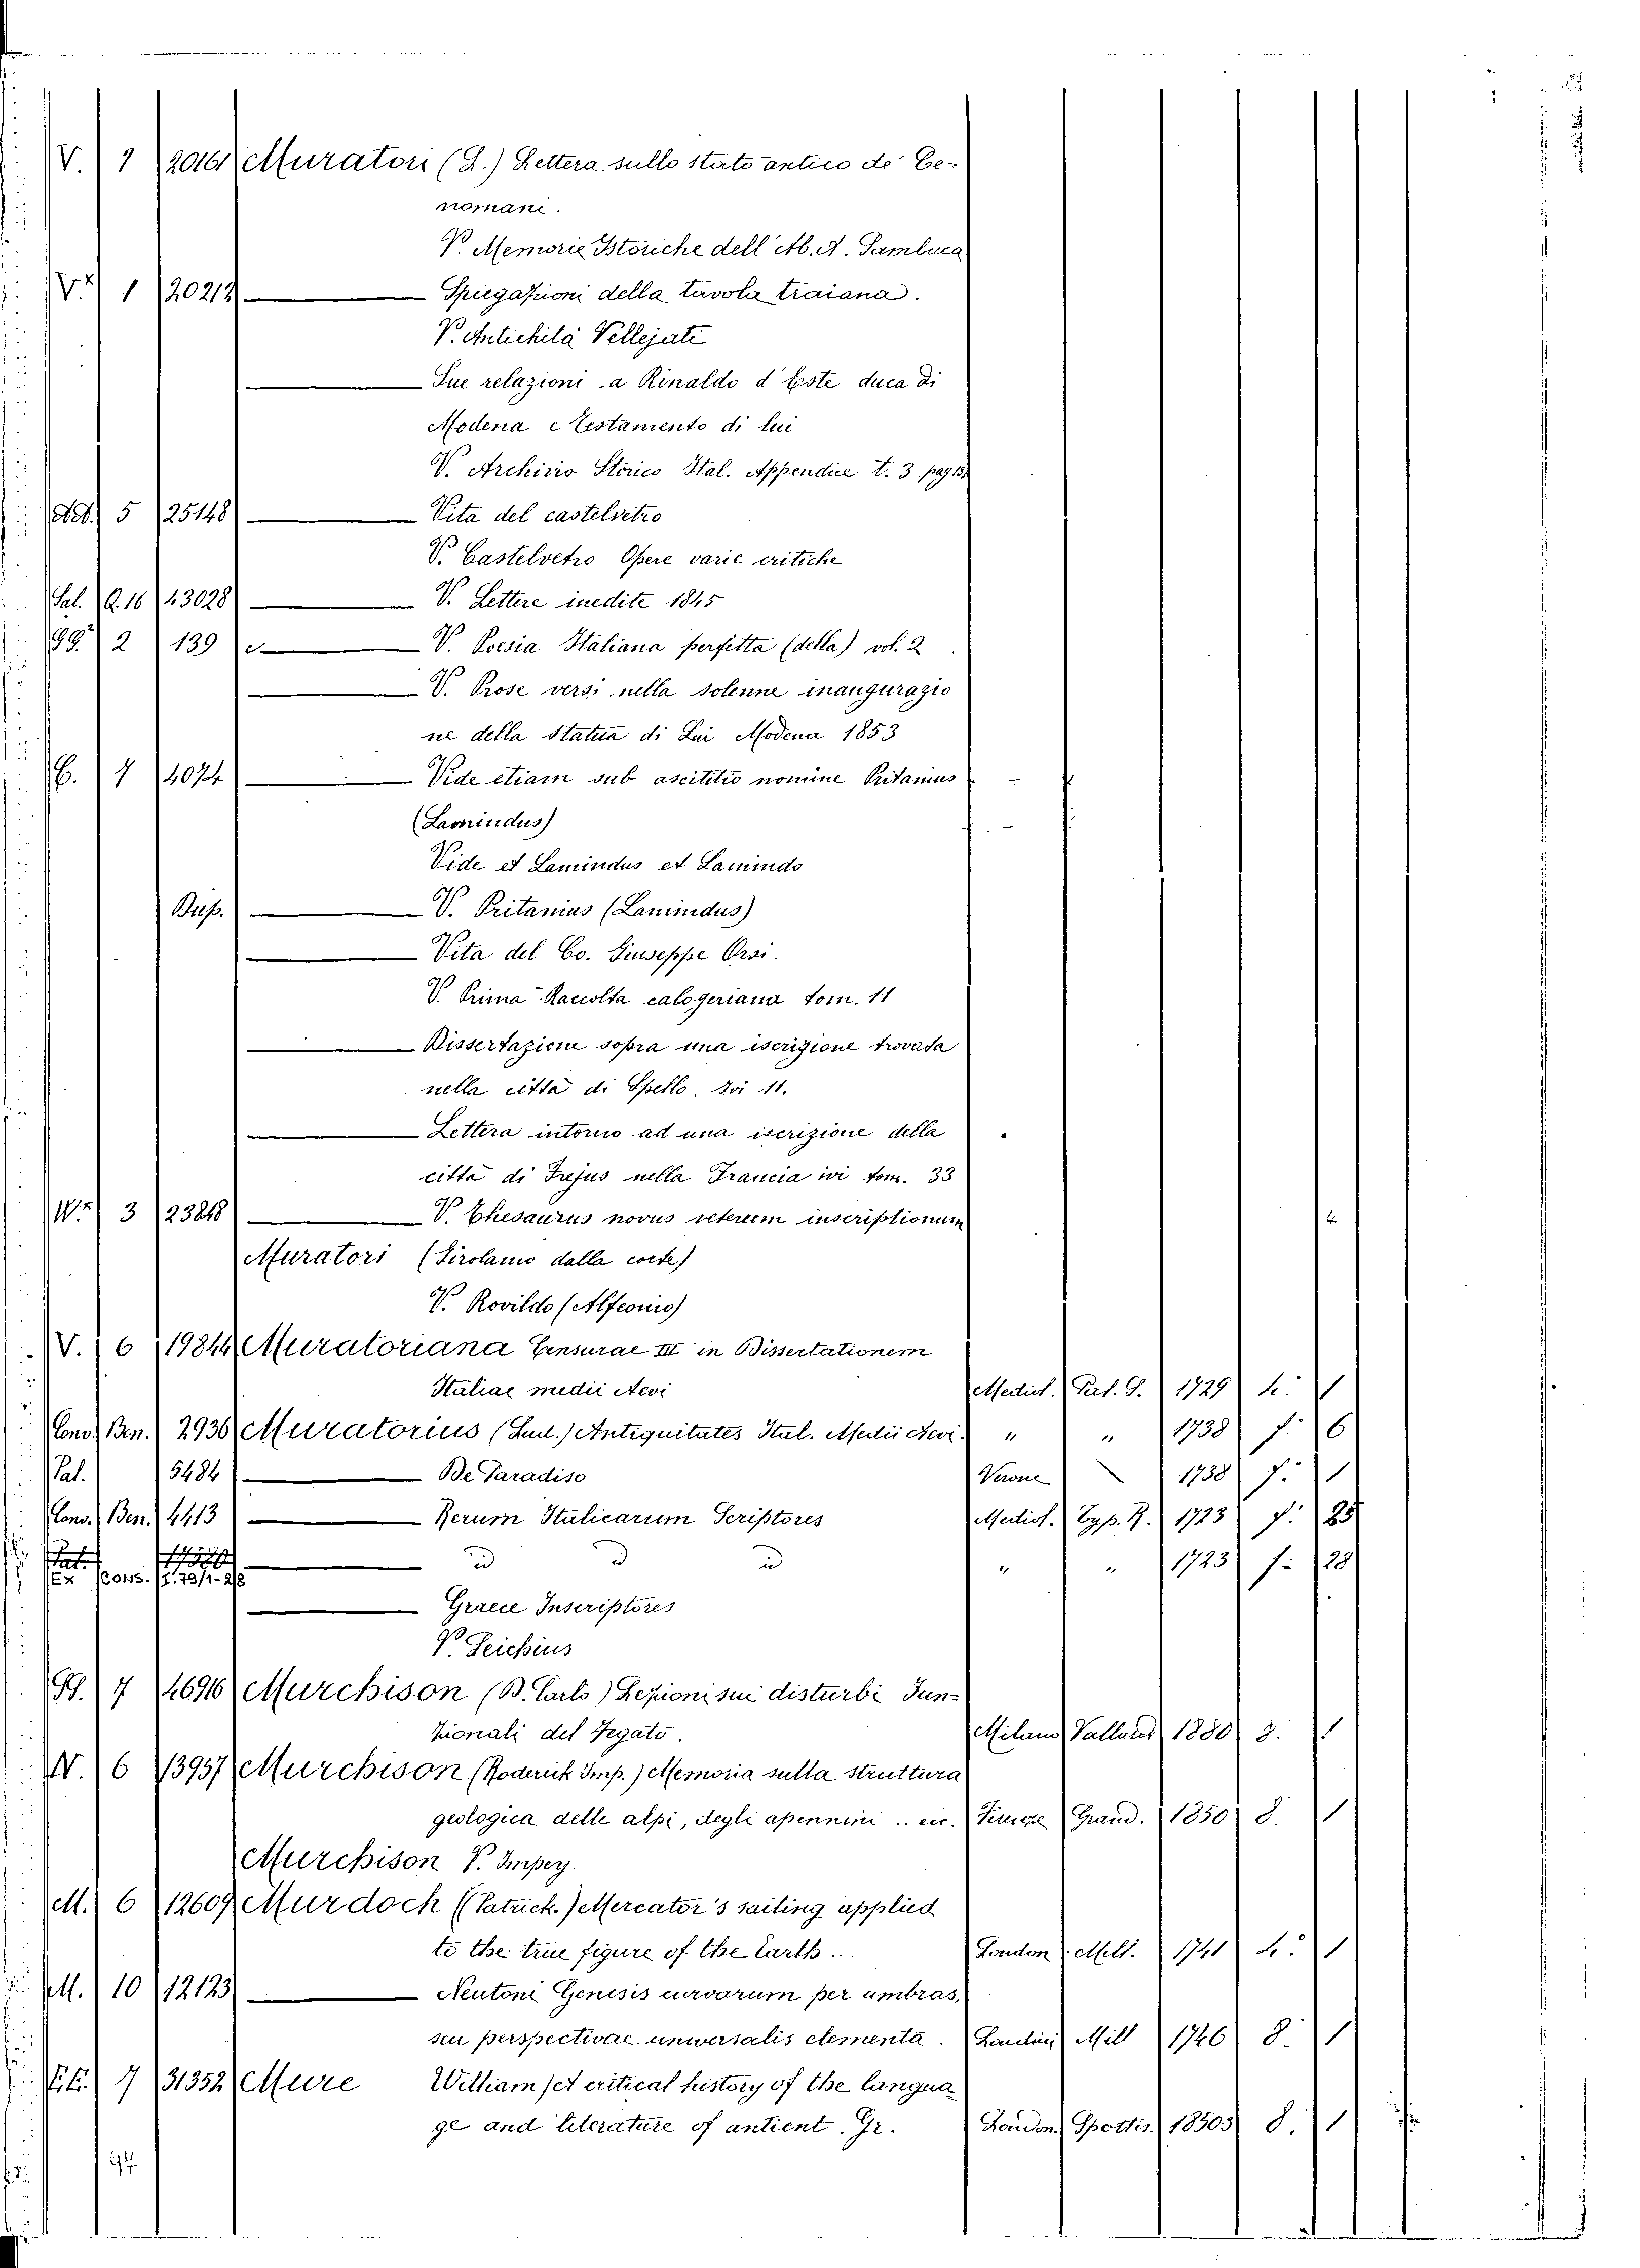 V. 1 20161 Muratori (L.) Lettera sullo stato antico de' Ce-
nomani.
V. Memorie Istoriche dell' Ab. A. Sambuca
V.2 1 20212 — Spiegazioni della tavola traiana.
V. Antichità Vellejati
— Sue relazioni a Rinaldo d'Este duca di
Modena e testamento di lui
V. Archivio Storico Ital. Appendice t. 3 pag
5 25148 — Vita del castelvetro
V. Castelvetro Opere varie critiche
Sal. Q. 16 43028 — V. Lettere inedite 1845
2 139 — V. Poesia Italiana perfetta (della) vol. 2
— V. Prose versi nella solenne inaugurazio
ne della Statua di Lui Modena 1853
— Vide etiam sub ascititio nomine Pritanius
(Lamindus)
Vide et Lamindus et Lamindo
Dup. — V. Pritanius (Lamindus)
— Vita del Co. Giuseppe Orsi.
V. Prima Raccolta calogeriana tom. 11
— Dissertazione sopra una iscrizione trovata
nella città di Spello. ivi 11.
— Lettera intorno ad una iscrizione della
città di Frejus nella Francia ivi tom. 33
3 23848 — V. Thesaurus novus veterum inscriptionum
Muratori (Girolamo dalla corte)
V. Rovildo (Alfeonio)
V. 6 19844 Muratoriana Censurae III in Dissertationem
Italiae medii Aevi Mediol. Pal. 1729 4. 1
Cons. Ben. 2936 Muratorius (Lud.) Antiquitates Ital. Medii Aevi. " " 1738 f. 6
Pal. 5484 — De Paradiso Verone \ 1738 f. 1
Cons. Ben. 4413 — Rerum Italicarum Scriptores Mediol. Typ. 1723 f. 25
id id id " " 1723 f. 28
— Graece Inscriptores
V. Leichius
7 4696 Murchison (B. Carlo) Lezioni sui disturbi fun-
zionali del fegato. Milano Vallardi 1880 8. 1
6 13957 Murchison (Roderick Imp.) Memoria sulla struttura
geologica delle alpi, degli apennini .. ec. Firenze Grand. 1850 8. 1
Murchison V. Impey.
M. 6 12609 Murdoch (Patrick.) Mercator's sailing applied
to the true figure of the Earth. London Mill. 1741 4. 1
M. 10 12123 — Neutoni Genesis curvarum per umbras,
seu perspectivae universalis elementa. Londini Mill 1746 8. 1
7 31352 Mure William A critical history of the langua
ge and literature of antient. Gr. London. Spottis. 18505 8. 1